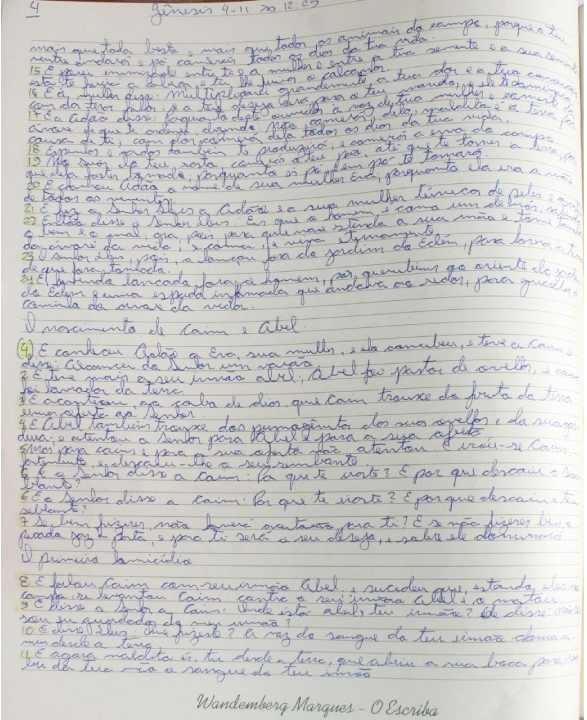 4 Gênesis 4-11 30.12.25
mais que toda besta e mais que todos os animais do campo, porque o teu
ventre andarás e pó comerás todos os dias da tua vida.
15 E porei inimizade entre ti e a mulher e entre a tua semente e a sua semente
esta te ferirá a cabeça e tu lhe o calcanhar
16 E à mulher disse: Multiplicarei grandemente a tua dor e a tua conceição
com dor teras filhos; e o teu desejo será para o teu marido, e ele te dominará
17 E a Adão disse: Porquanto deste ouvidos a voz de tua mulher e comeste da
árvore de que te ordenei, dizendo: Não comerás dela, maldita é a terra por
causa de ti; com dor comerás dela todos os dias da tua vida.
18 Espinhos e cardos também produzirá, e comerás a erva do campo.
19 No suor do teu rosto comerás o teu pão, até que te tornes a terra, por
que dela foste tomado, porquanto és pó e em pó te tornarás
20 E chamou Adão o nome de sua mulher Eva, porquanto ela era a mãe
de todos os viventes.
21 E fez o Senhor Deus a Adão e a sua mulher túnicas de peles e os
22 E Então disse o Senhor Deus: Eis que o homem é como um de nós, sabendo
o bem e o mal, ora, pois, para que não estenda a sua mão e tome também
da árvore da vida e coma, e viva eternamente
23 O Senhor Deus, pois, o lançou fora do jardim do Éden, para lavrar a terra
de que fora tomado.
24 E havendo lançado fora o homem, pôs querubins ao oriente do jardim
do Éden e uma espada inflamada que andava ao redor, para guardar o
caminho da árvore da vida.
O nascimento de Caim e Abel
4 E conheceu Adão a Eva, sua mulher, e ela concebeu, e teve a Caim e
disse: Alcancei do Senhor um varão
2 E teve mais a seu irmão Abel; Abel foi pastor de ovelhas, e Caim
foi lavrador da terra
3 E aconteceu ao cabo de dias que Caim trouxe do fruto da terra
uma oferta ao Senhor.
4 E Abel também trouxe dos primogênitos das suas ovelhas e da sua gor
dura; e atentou o Senhor para Abel e para a sua oferta
5 Mas para Caim e para a sua oferta não atentou E irou-se Caim
fortemente, e descaiu-lhe o seu semblante
6 E o Senhor disse a Caim: Por que te iraste? E por que descaiu o teu sem
blante?
6 E o Senhor disse a Caim: Por que te iraste? E por que descaiu o teu
semblante?
7 Se bem fizeres, não haverá aceitação para ti? E se não fizeres bem, o
pecado jaz a porta, e para ti será o seu desejo, e sobre ele dominarás
O primeiro homicídio
8 E falou Caim com seu irmão Abel; e sucedeu que, estando eles no
campo, se levantou Caim contra o seu irmão Abel e o matou
9 E disse o Senhor a Caim: Onde está Abel, teu irmão? Ele disse: não sei
sou eu guardador do meu irmão?
10 E disse Deus: Que fizeste? A voz do sangue do teu irmão clama a
mim desde a terra
11 E agora maldito és tu desde a terra, que abriu a sua boca para rece
ber da tua mão o sangue do teu irmão
Wandemberg Marques - O Escriba